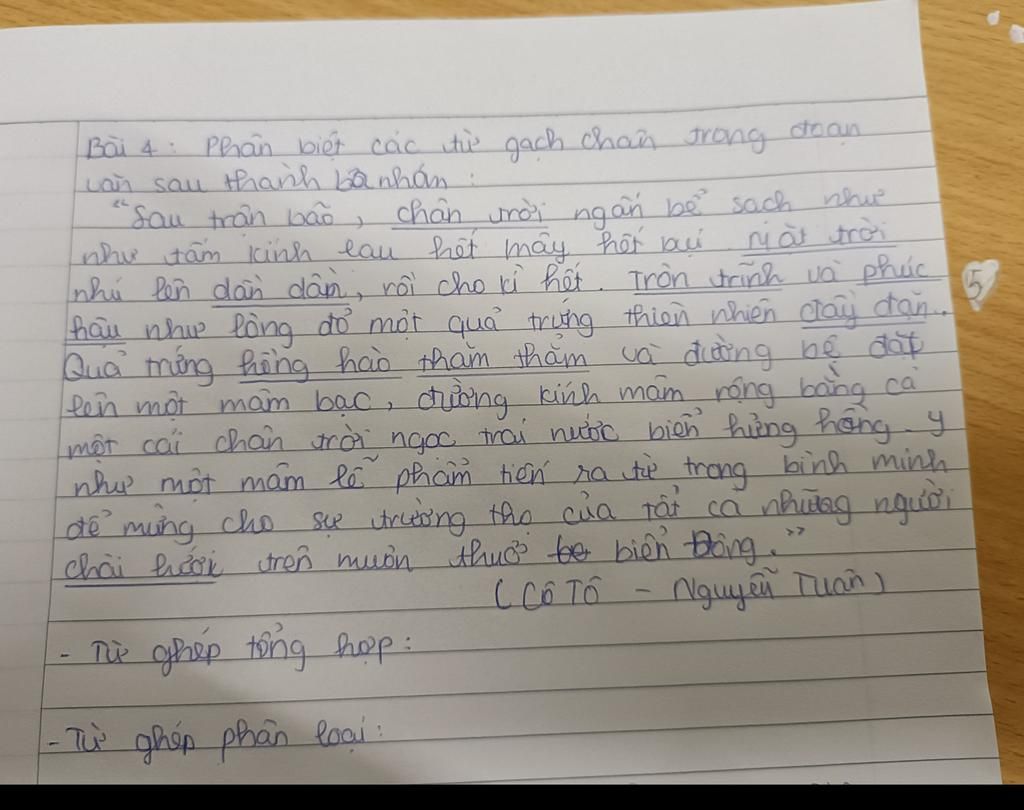 Bài 4: Phân biệt các từ gạch chân trong đoạn
văn sau thành ba nhóm:
"Sau trận bão, chân trời ngấn bể sạch như
như tấm kính lau hết mây hết bụi. Mặt trời
nhú lên dần dần, rồi cho kì hết. Tròn trĩnh và phúc
hậu như lòng đỏ một quả trứng thiên nhiên đầy đặn.
Quả trứng hồng hào thăm thẳm và đường bệ đặt
lên một mâm bạc, đường kính mâm rộng bằng cả
một cái chân trời ngọc trai nước biển hửng hồng. Y
như một mâm lễ phẩm tiến ra từ trong bình minh
để mừng cho sự trường thọ của tất cả những người
chài lưới trên muôn thuở biển Đông."
(Cô Tô - Nguyễn Tuân)
- Từ ghép tổng hợp:
- Từ ghép phân loại:
5